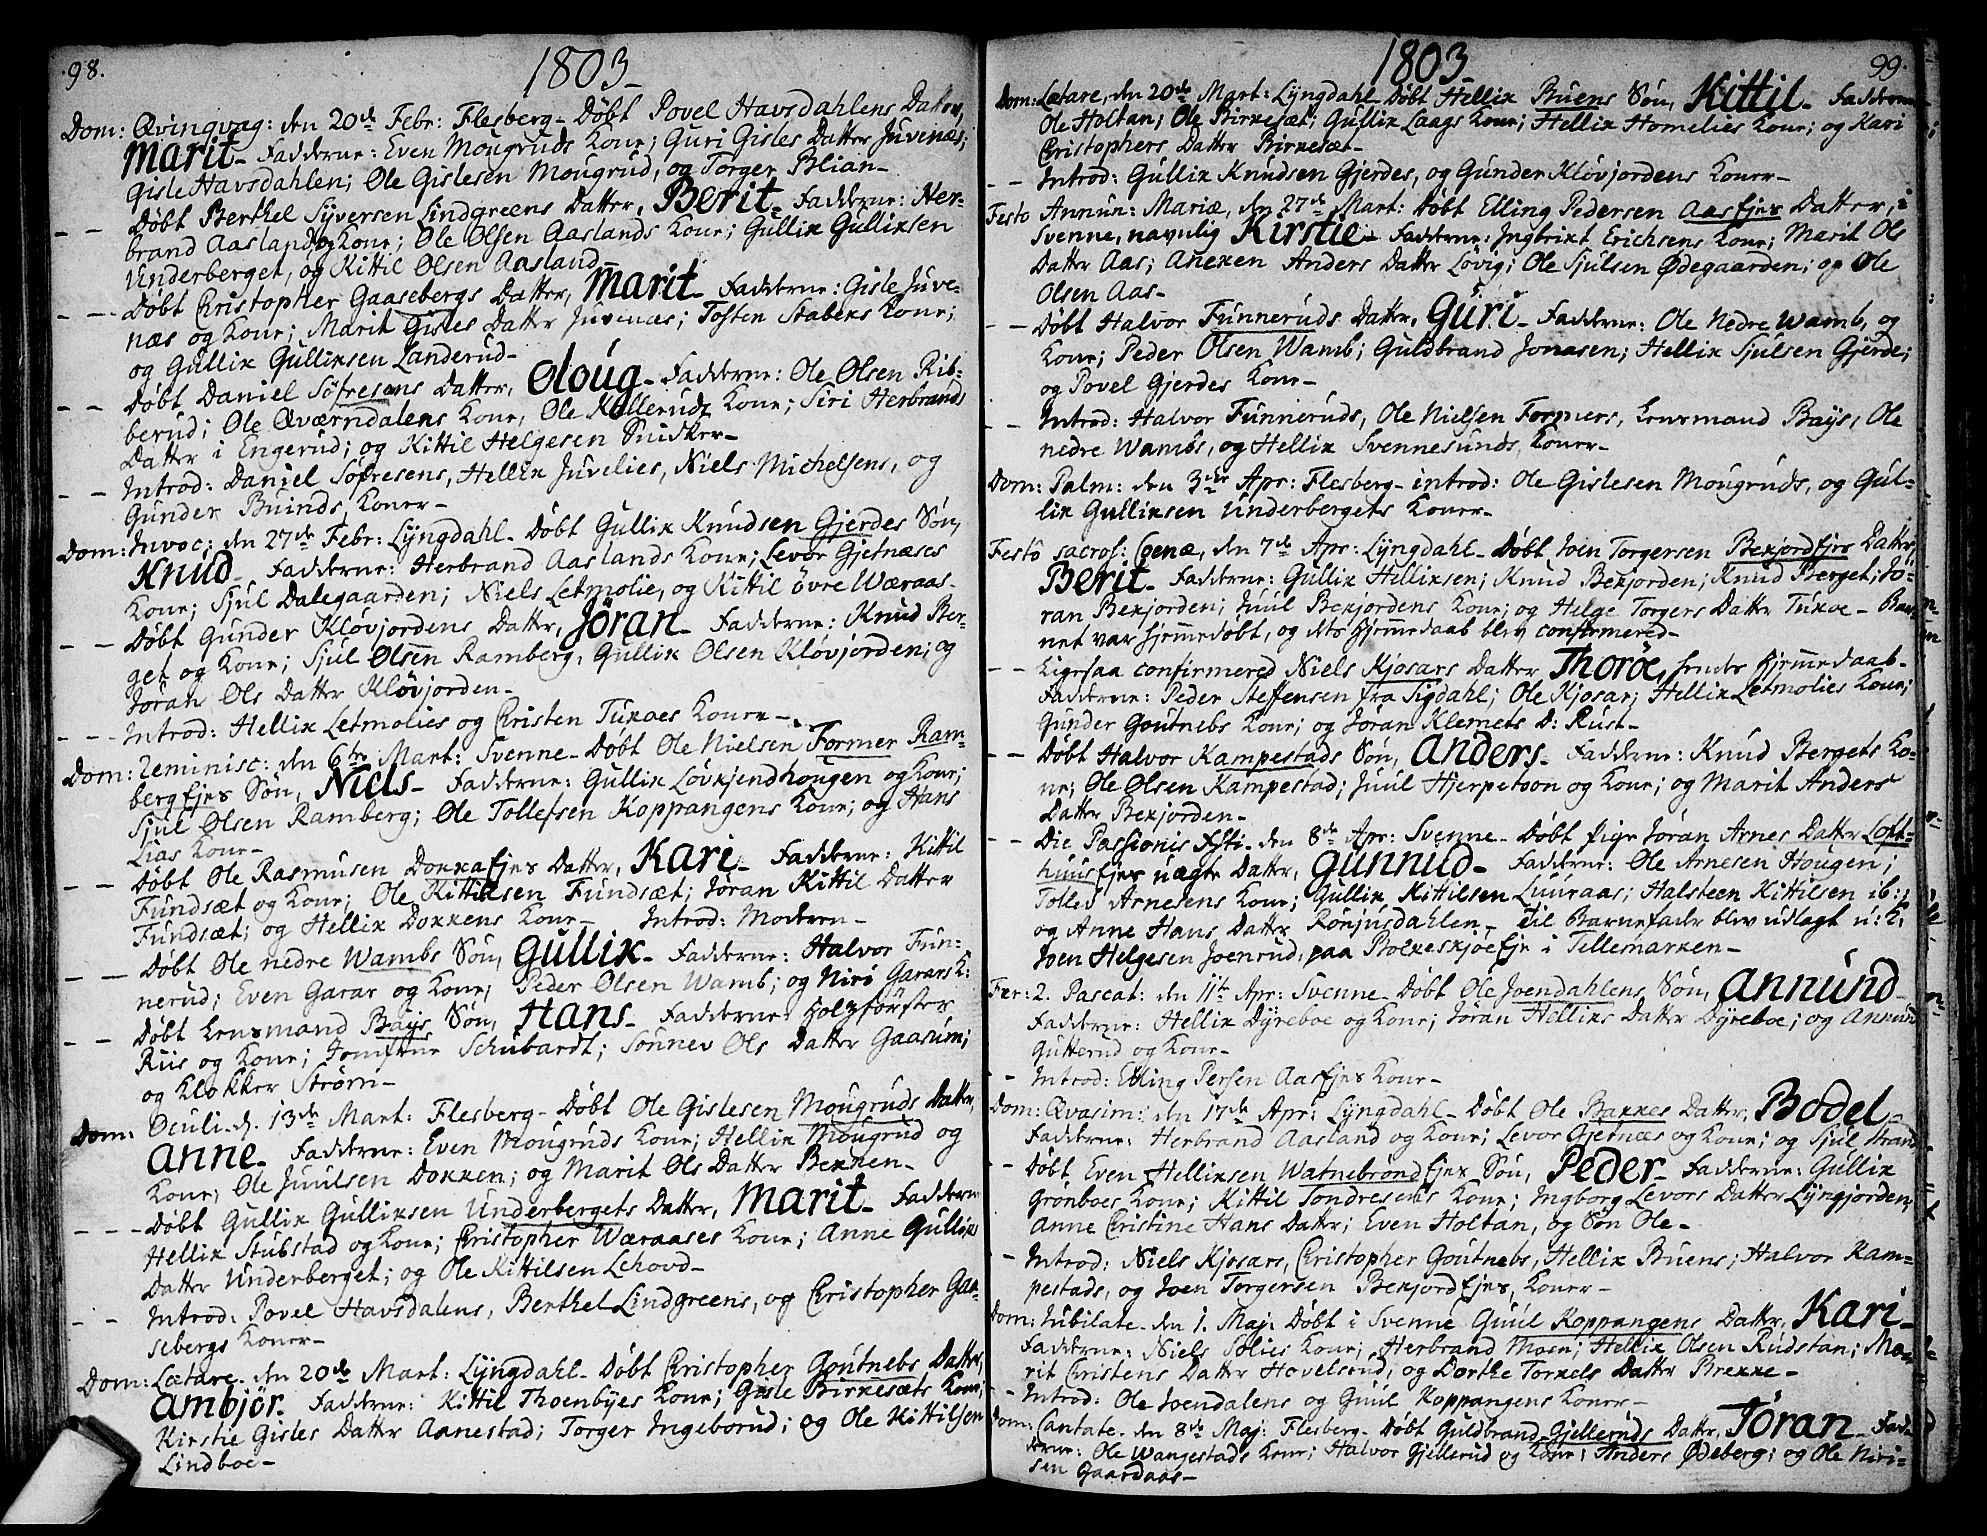 98.
1803
Dom: Qvinqvag: den 20de Febr: Flesberg- Døbt Povel Havsdahlens Datter,
Marit- Fadderne: Even Mougruds Kone; Guri Gisles Datter Juvenæs;
Gisle Havsdahlen; Ole Gislesen Mougrud, og Torger Blian-
- - Døbt Berthel Syversen Lindgreens Datter, Berit- Fadderne: Her-
brand Aasland og Kone; Ole Olsen Aaslands Kone; Gullik Gulliksen
Underberget, og Kittil Olsen Aasland-
- - Døbt Christopher Gaasebergs Datter, Marit- Fadderne: Gisle Juve-
næs og Kone; Marit Gisles Datter Juvenæs; Tosten Stabeks Kone;
og Gullik Gulliksen Landerud-
- - Døbt Daniel Søfresens Datter, Oloug- Fadderne: Ole Olsen Rib-
berud; Ole Qværndalens Kone, Ole Kolleruds Kone; Siri Herbrands
Datter i Engerud; og Kittil Helgesen Snidker-
- - Introd: Daniel Sofresens, Hellik Juvelies, Niels Michelsens, og
Gunder Buinds, Koner-
Dom: Invoc: den 27de Febr: Lyngdahl- Døbt Gullik Knudsen Gjerdes Søn,
Knud- Fadderne: Herbrand Aaslands Kone; Levor Gjetnæses
Kone; Sjul Dalegaarden; Niels Letmolie, og Kittil övre Wæraas-
- - Døbt Gunder Kløvjordens Datter, Jöran- Fadderne: Knud Ber-
get og Kone; Sjul Olsen Ramberg, Gullik Olsen Kløvjorden; og
Jöran Ols Datter Kløvjorden-
- - Introd: Hellik Letmolies og Christen Tukaes Koner-
Dom: Reminisc: den 6te Mart: Svenne- Døbt Ole Nielsen Former Ram-
berg Ejes Søn, Niels- Fadderne: Gullik Løvkjendhougen og Kone;
Sjul Olsen Ramberg; Ole Tollefsen Koppangens Kone; og Hans
Lias Kone-
- - Døbt Ole Rasmusen Dokka Ejes Datter, Kari- Fadderne: Kittil
Fundsæt og Kone; Ole Kittilsen Fundsæt; Jöran Kittil Datter
Fundsæt; og Hellik Dokkens Kone- Introd: Moderen-
- - Døbt Ole nedre Wambs Søn, Gullik- Fadderne: Halvor Fun-
nerud; Even Garar og Kone; Peder Olsen Wamb; og Niri Garars K:
- - Døbt Lensmand Bays Søn, Hans- Fadderne: Holzförster
Riis og Kone; Jomfrue Schubardt; Sönnev Ols Datter Gaasum;
og Klokker Strøm-
Dom: Oculi- d. 13de Mart: Flesberg- Døbt Ole Gislesen Mougruds Datter,
Anne- Fadderne: Even Mougruds Kone; Hellik Mougrud og
Kone; Ole Juulsen Dokken; og Marit Ols Datter Bekken-
- - Døbt Gullik Gulliksen Underbergets Datter, Marit- Fadderne
Hellik Stubstad og Kone; Christopher Wæraases Kone; Anne Gulliks
Datter Underberget; og Ole Kittilsen Lehovd-
- - Introd: Povel Havsdalens, Berthel Lindgreens, og Christopher Gaa-
sebergs Koner-
Dom: Lætare- den 20de Mart: Lyngdahl- Døbt Christopher Goutnebs Datter,
Ambjör- Fadderne: Kittil Thoenbyes Kone; Gisle Birkesæts Kone;
Kirstie Gisles Datter Aanestad; Torger Ingeborud; og Ole Kittilsen
Lindboe-
1803
99.
Dom: Lætare, den 20de Mart: Lyngdahl- Døbt Hellik Buens Søn, Kittil- Fadderne
Ole Holtan; Ole Birkesæt; Gullik Laags Kone; Hellik Homelies Kone; og Kari
Christophers Datter Birkesæt-
- - Introd: Gullik Knudsen Gjerdes, og Gunder Kløvjordens Koner-
Festo Annun: Mariæ, den 27de Mart: Døbt Elling Pedersen Aas Ejes Datter, i
Svenne, navnlig Kirstie- Fadderne: Ingbrikt Erichsens Kone; Marit Ols
Datter Aas; Aneken Anders Datter Løvig; Ole Sjulsen Ødegaarden; op Ole
Olsen Aas-
- - Døbt Halvor Funneruds Datter, Guri- Fadderne: Ole Nedre Wamb, og
Kone; Peder Olsen Wamb; Guldbrand Jonasen; Hellik Sjulsen Gjerde;
og Povel Gjerdes Kone-
- - Introd: Halvor Funneruds, Ole Nielsen Formers, Lensmand Bays, Ole
nedre Wambs, og Hellik Svennesunds, Koner-
Dom: Palm: den 3die Apr: Flesberg- introd: Ole Gislesen Mougruds, og Gul-
lik Gulliksen Underbergets Koner-
Festo sacros: Coenæ, den 7de Apr: Lyngdahl- Døbt Joen Torgersen Bekjord Ejes Datter,
Berit- Fadderne: Gullik Helliksen; Knud Bekjorden; Knud Berget; Jö-
ran Bekjorden; Juul Bekjordens Kone; og Helge Torgers Datter Tukoe- Bar-
net var hjemmedøbt, og dets hjemmedaab blev confirmered-
- - Ligesaa confirmered Niels Kjosars Datter Thoröe, hendes hjemmedaab-
Fadderne: Peder Steffensen fra Sigdahl; Ole Kjosar; Hellik Letmolies Kone;
Gunder Goutnebs Kone; og Jöran Klemets D: Rust-
- - Døbt Halvor Kampestads Søn, Anders- Fadderne: Knud Bergets Ko-
ne; Ole Olsen Kampestad; Juul Hjerpetoon og Kone; og Marit Anders
Datter Bekjorden-
- - Die Passionis Xsti- den 8de Apr: Svenne- Døbt Pige Jöran Arnes Datter Loft-
huus Ejes uægte Datter, Gunnud- Fadderne: Ole Arnesen Hougen;
Tollev Arnesens Kone; Gullik Kittilsen Luuraas; Halsteen Kittilsen ib:;
og Anne Hans Datter Rörjusdahlen- Til Barnefader blev udlagt u: K:
Joen Helgesen Joenrud, paa Bolkeskjoe Eje i Tellemarken-
Fer: 2. Pascat: den 11te Apr: Svenne- Døbt Ole Joendahlens Søn, Annund-
Fadderne: Hellik Dyreboe og Kone; Jöran Helliks Datter Dyreboe; og Annun
Gutterud og Kone-
- - Introd: Elling Persen Aas Ejes Kone-
Dom: Qvasim: den 17de Apr: Lyngdahl- Døbt Ole Bakkes Datter, Bodel-
Fadderne: Herbrand Aasland og Kone; Levor Gjetnæs og Kone; og Sjul Strand
- - Døbt Even Helliksen Watnebrönd Ejes Søn, Peder- Fadderne: Gullik
Grönboes Kone; Kittil Tondresens Kone; Ingborg Levors Datter Lyngjorden;
Anne Christine Hans Datter; Even Holtan, og Søn Ole-
- - Introd: Niels Kjosars, Christopher Goutnebs, Hellik Buens; Halvor Kam-
pestads, og Joen Torgersen Bekjord Ejes, Koner-
Dom: Jubilate- den 1. Maj: Døbt i Svenne Guul Koppangens Datter, Kari-
Fadderne: Niels Solies Kone; Herbrand Thoen; Hellik Olsen Rudstan; Ma-
rit Christens Datter Hovelsrud; og Dorthe Torkels Datter Brekke-
- Introd: Ole Joendalens og Guul Koppangens Koner-
Dom: Cantate- den 8de Maj: Flesberg- Døbt Guldbrand Gjelleruds Datter, Jöran- Fad-
derne: Ole Wangestads Kone; Halvor Gjellerud og Kone; Anders Ødeberg; og Ole Niri-
sen Gaardaas-